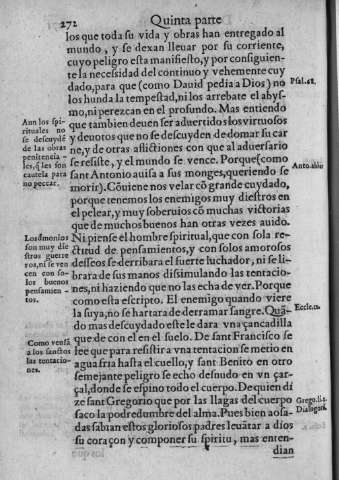 272
Quinta parte
los que toda su vida y obras han entregado al
mundo, y se dexan lleuar por su corriente,
cuyo peligro esta manifiesto, y por consiguien-
te la necessidad del continuo y vehemente cuy
dado, para que (como Dauid pedia a Dios) no
los hunda la tempestad, ni los arrebate el abys-
mo, ni perezcan en el profundo. Mas entiendo
que tambien deuen ser aduertidos los virtuosos
y deuotos que no se descuyden de domar su car
ne, y de otras aflictiones con que al aduersario
se resiste, y el mundo se vence. Porque (como
sant Antonio auisa a sus monges, queriendo se
morir). Cõuiene nos velar cõ grande cuydado,
porque tenemos los enemigos muy diestros en
el pelear, y muy soberuios cõ muchas victorias
que de muchos buenos han otras vezes auido.
Ni piense el hombre spiritual, que con sola re-
ctitud de pensamientos, y con solos amorosos
deseos se derribara el fuerte luchador, ni se li-
brara de sus manos dissimulando las tentacio-
nes, ni haziendo que no las echa de ver. Porque
como esta escripto. El enemigo quando viere
la suya, no se hartara de derramar sangre. Quã-
do mas descuydado este le dara vna çancadilla
que de con el en el suelo. De sant Francisco se
lee que para resistir a vna tentacion se metio en
agua fria hasta el cuello, y sant Benito en otro
semejante peligro se echo desnudo en vn çar-
çal, donde se espino todo el cuerpo. De quien di
ze sant Gregorio que por las llagas del cuerpo
saco la podredumbre del alma. Pues bien aosa-
das sabian estos gloriosos padres leuãtar a dios
su coraçon y componer su spiritu, mas enten-
dian
Aun los spi-
rituales no
se descuydẽ
de las obras
penitencia -
les, q̃ les son
cautela para
no peccar.
Los demonios
son muy die
stros guerre
ros, ni se ven
cen con so-
los buenos
pensamien -
tos.
Como vensã
a los sanctos
las tentacio-
nes.
Psal. 68.
Anto.
Eccle. 12.
Grego. li. 2.
Dialogorũ.